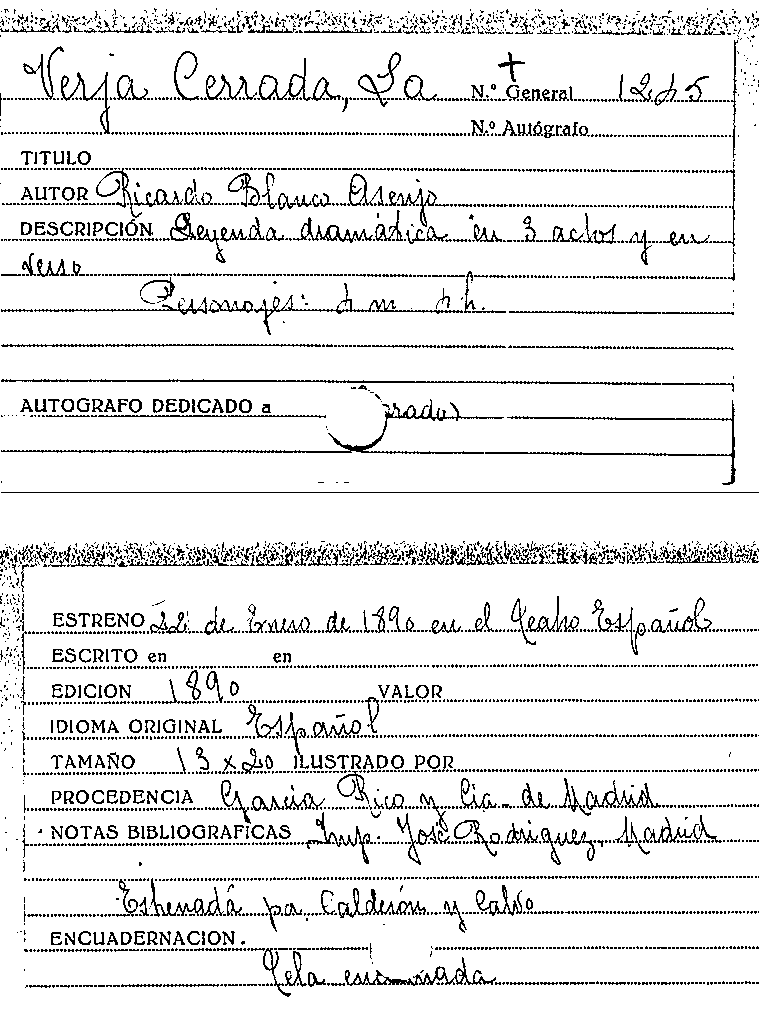 Verja Cerrada, La
N.º General 1245
N.º Autógrafo
TITULO
AUTOR Ricardo Blanco Asenjo
DESCRIPCIÓN Leyenda dramática en 3 actos y en
verso
Personajes: 4 m 4 h.
AUTOGRAFO DEDICADO a rado)
ESTRENO 22 de Enero de 1890 en el Teatro Español
ESCRITO en en
EDICION 1890 VALOR
IDIOMA ORIGINAL Español
TAMAÑO 13 x 20 ILUSTRADO POR
PROCEDENCIA García Rico y Cia. de Madrid
NOTAS BIBLIOGRAFICAS Imp. José Rodriguez. Madrid
Estrenada por Calderón y Calvo
ENCUADERNACION.
Tela encarnada